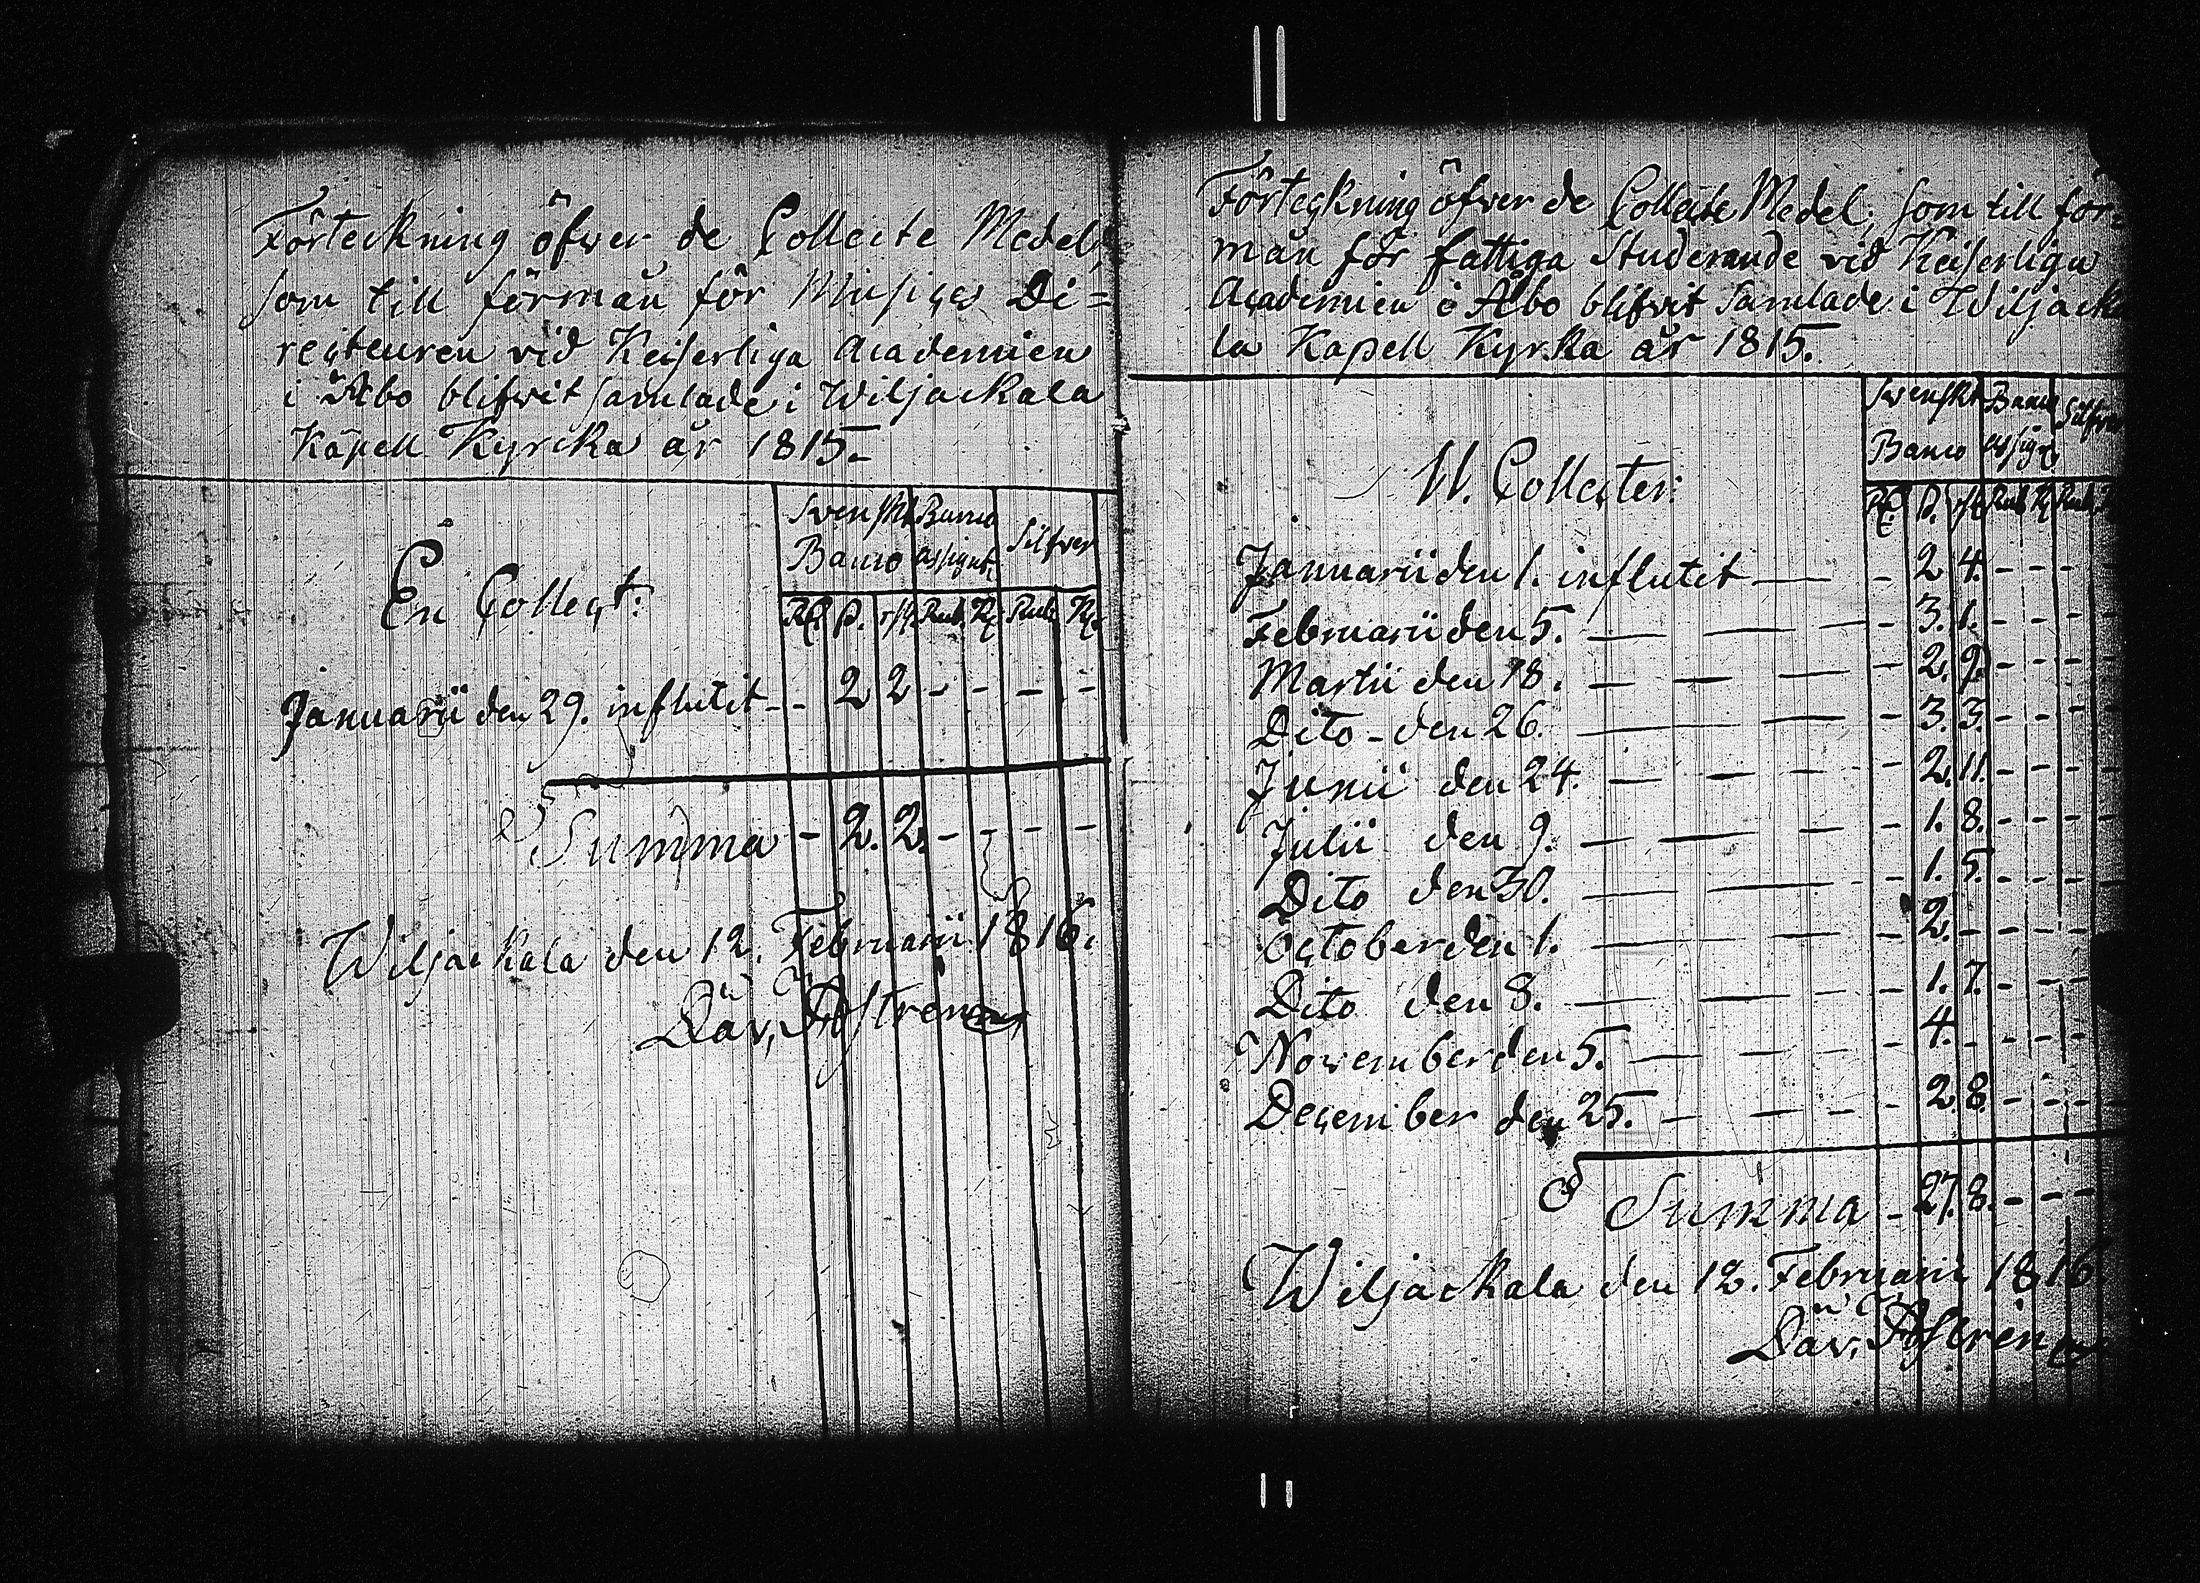 Förteckning öfwer de Collecte Medel,
som till förmån för Musices Di=
recteuren vid Keiserliga Academien
i Åbo blifvit samlade i Wiljackala
Kapell Kyrcka år 1815.
En Collect:
Swenskt Banco
Banco assignt. Silfver
R. ß. r/st. Rub. K. Rub. K.
Januarii den 29. influtit - - 2 2 - - - -
Summa - 2. 2. - - - -
Wiljackala den 12. Februarii 1816.
Dav. Åström
Förteckning öfwer de Collecte Medel, som till för=
mån för fattiga Studerande vid Keiserliga
Academien i Åbo blifvit samlade i Wiljack
la Kapell Kyrka år 1815.
Swenskt Banco Silfver
Banco assigt.
11. Collecter:
R. ß. r/st. Rub. K. Rub.
Januarii den 1. influtit — - 2 4. - - -
Februarii den 5. — — — - 3. 1. - - - -
Martii den 18. — — — - 2. 9. - - - -
Dito - den 26. — — — - 3. 3. - - -
Junii den 24. — — — - 2. 11. - - - -
Julii den 9. — — — - 1. 8. - - - -
Dito den 30. — — — - 1. 5. - - - -
October den 1. — — — - 2. - - - - -
Dito den 8. — — — - 1. 7. - - -
November den 5. — — — - 4. - - - -
December den 25. — — — - 2. 8. - - - -
Summa - 27. 8. - - -
Wiljackala den 12. Februarii 1816
Dav.